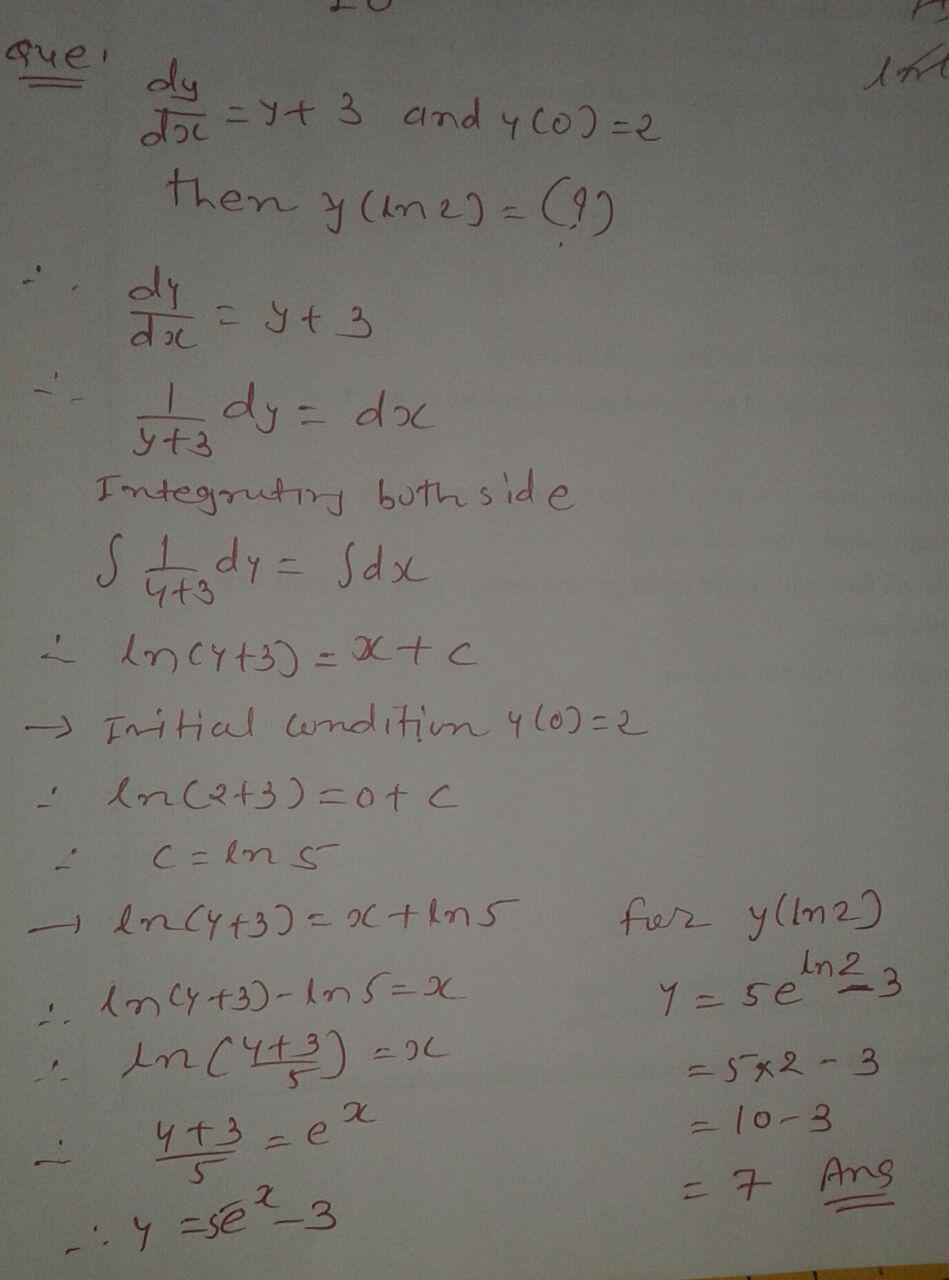 Que:
dy/dx = y + 3 and y(0) = 2
then y(ln2) = (?)
∴ dy/dx = y + 3
∴ 1/(y+3) dy = dx
Integrating both side
∫ 1/(y+3) dy = ∫dx
∴ ln(y+3) = x + c
→ Initial condition y(0) = 2
∴ ln(2+3) = 0 + c
∴ c = ln 5
→ ln(y+3) = x + ln5
∴ ln(y+3) - ln5 = x
∴ ln((y+3)/5) = x
∴ (y+3)/5 = e^x
∴ y = 5e^x - 3
for y(ln2)
y = 5e^ln2 - 3
= 5×2 - 3
= 10 - 3
= 7 Ans